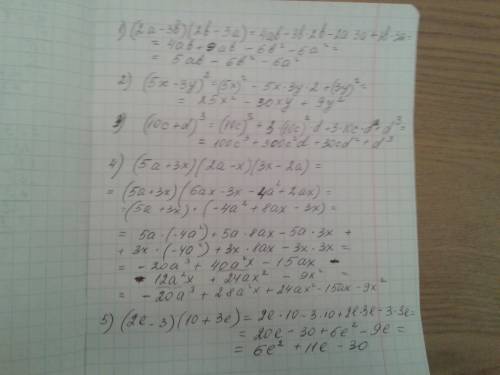 1) (2a-3b)(2b-3a) = 4ab-3b·2b-2a·3a+3b·3a=
= 4ab+9ab-6b²-6a²=
= 5ab-6b²-6a²
2) (5x-3y)²=(5x)²-5x·3y·2+(3y)²=
= 25x²-30xy+9y²
3) (10c+d)³=(10c)³+3·(10c)²d+3·10c·d²+d³=
= 100c³+300c²d+30cd²+d³
4) (5a+3x)(2a-x)(3x-2a)=
= (5a+3x)(6ax-3x-4a²+2ax)=
(5a+3x)·(-4a²+8ax-3x)=
= 5a·(-4a²)+5a·8ax-5a·3x+
+3x·(-4a²)+3x·8ax-3x·3x=
= -20a³+40a²x-15ax-
-12a²x+24ax²-9x²=
= -20a³+28a²x+24ax²-15ax-9x²
5) (2e-3)(10+3e)=2e·10-3·10+2e·3e-3·3e=
= 20e-30+6e²-9e=
= 6e²+11e-30